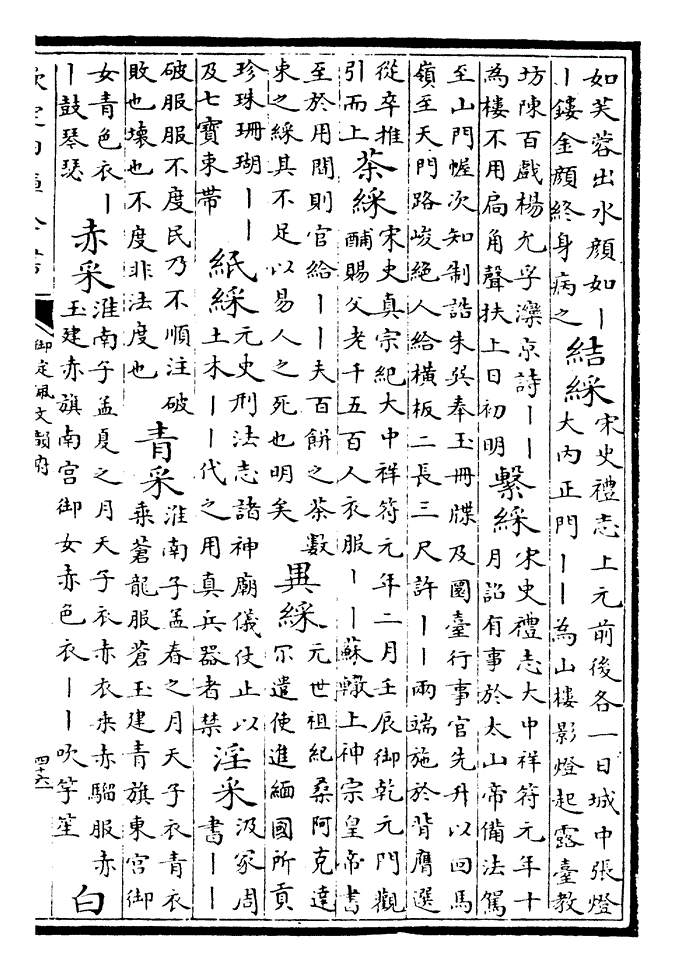 如芙蓉出水顔如丨
丨鏤金顔終身病之
結綵
宋史禮志上元前後各一日城中張燈
大内正門丨丨為山樓影燈起露臺教
坊陳百戲楊允孚灤京詩丨丨
為樓不用扃角聲扶上日初明
繫綵
宋史禮志大中祥符元年十
月詔有事於太山帝備法駕
至山門幄次知制誥朱巽奉玉冊牒及圜臺行事官先升以回馬
嶺至天門路峻絕人給橫板二長三尺許丨丨兩端施於背膺選
從卒推
引而上
茶綵
宋史真宗紀大中祥符元年二月壬辰御乾元門觀
酺賜父老千五百人衣服丨丨蘇轍上神宗皇帝書
至於用間則官給丨丨夫百餅之茶數
束之綵其不足以易人之死也明矣
異綵
元世祖紀桑阿克達
尒遣使進緬國所貢
珍珠珊瑚丨丨
及七寶束帶
紙綵
元史刑法志諸神廟儀仗止以
土木丨丨代之用真兵器者禁
淫采
汲冢周
書丨丨
破服服不度民乃不順注破
敗也壊也不度非法度也
青采
淮南子孟春之月天子衣青衣
乘蒼龍服蒼玉建青旗東宫御
女青色衣丨
丨鼓琴瑟
赤采
淮南子孟夏之月天子衣赤衣乘赤騮服赤
玉建赤旗南宫御女赤色衣丨丨吹竽笙
白
欽定四庫全書
御定佩文韻府